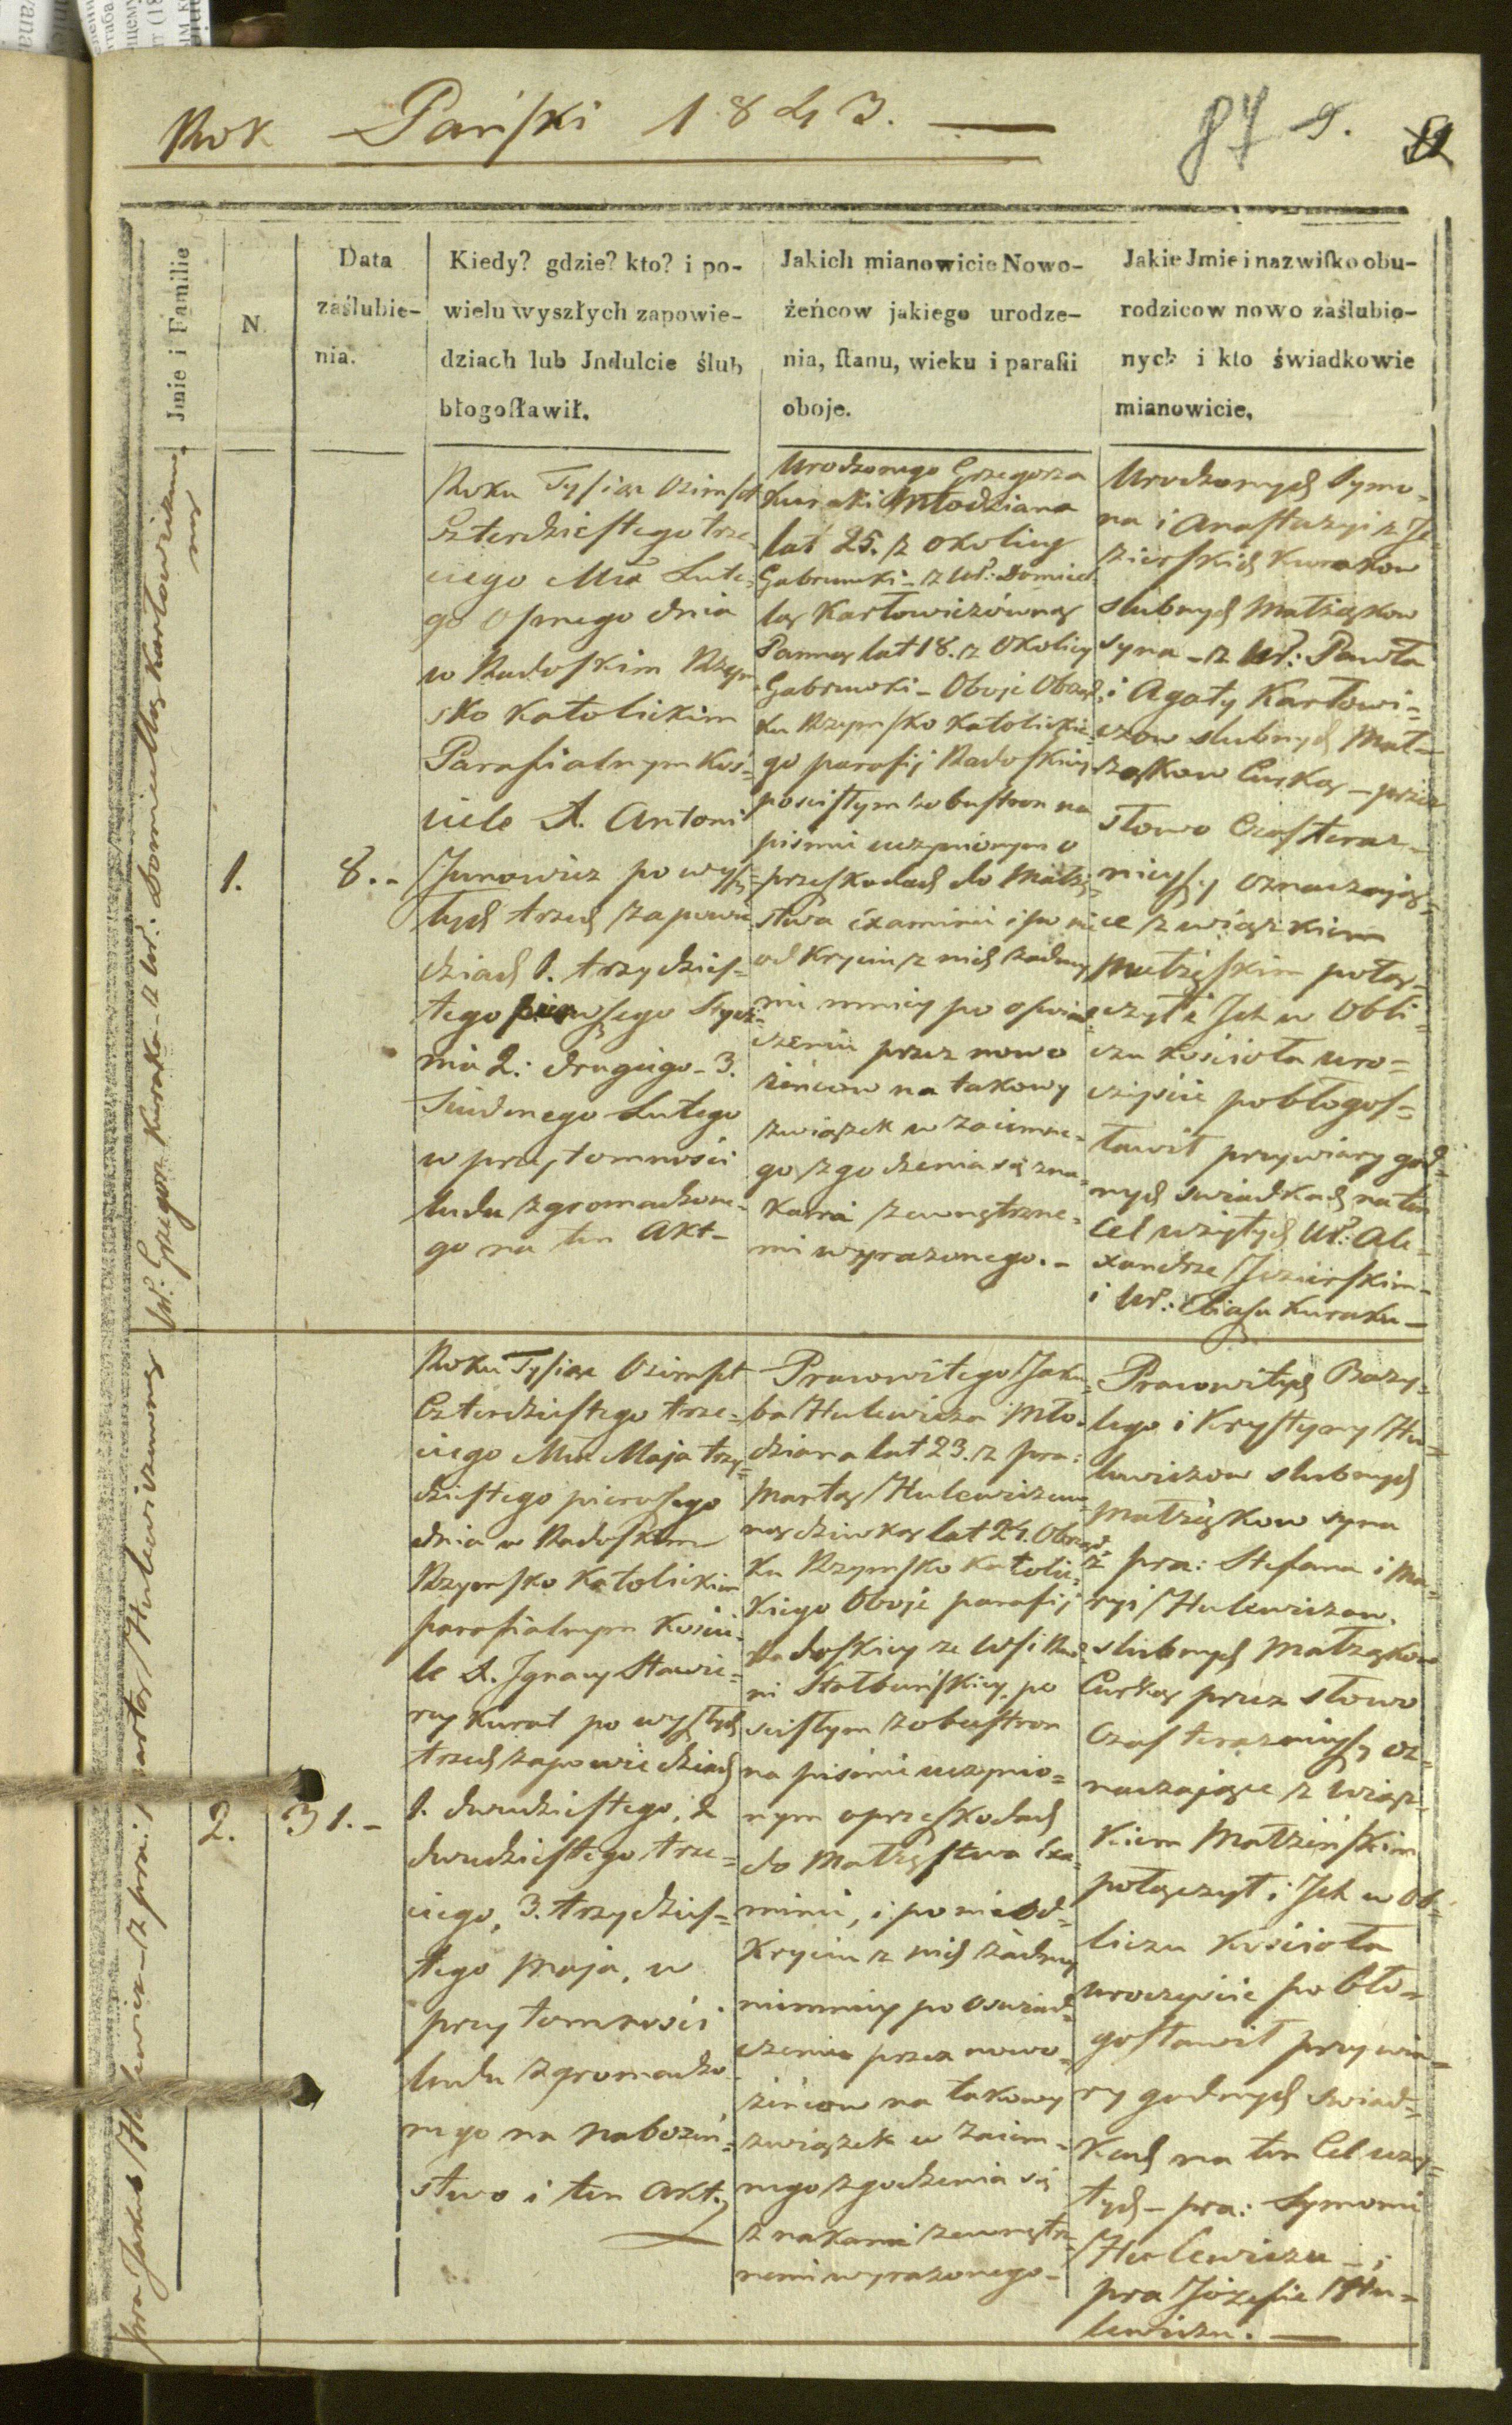 Rok Pański 1843.
87 9.
Jmie i Familie
N
Data
zaślubie-
nia.
Kiedy? gdzie? kto? i po-
wielu wyszłych zapowie-
dziach lub Jndulcie ślub
błogoſławił.
Jakich mianowicie Nowo-
żeńcow jakiego urodze-
nia, ſtanu, wieku i parafii
oboje.
Jakie Jmie i nazwiſko obu-
rodzicow nowo zaślubio-
nych i kto świadkowie
mianowicie.
Ur: Grzegorz Kuraka z Ur: Domicellą Karłowiczówną
1.
8.-
Roku Tyſiąc Ozimſet
Czterdzieſtego trze-
ciego Mca Lute-
go Oſmego dnia
w Radoſkim Rzym-
sko Katolickim
Parafialnym Koś-
ciele X. Antoni
Junowicz po wyſz-
łych trzech zapowie
dziach 1. trzydzieſ-
tego pierwſzego Stycz-
nia 2: drugiego - 3.
Siudmego Lutego
w przytomności
ludu zgromadzone-
go na ten Akt-
Urodzonego Grzegorza
Kuraki Młodziana
lat 25. z okolicy
Gabrunki - z Ur: Domicel-
lą Karłowiczówną
Panną lat 18. z Okolicy
Gabrunki - Oboje Obrząd-
ku Rzymſko Katolickie-
go parafij Radoſkiey
po sciſłym z obuſtron na
piśmie uczynionym o
przeſzkodach do Małżę-
stwa éxaminie i po nie
odkryciu z nich żadney
nie mniey po oſwiad-
czeniu przez nowo
żeńcow na takowy
związek wzaiemne-
go zgodzenia się zna-
kami zewnętrzne-
mi wyrażonego. -
Urodzonych Symo-
na i Anaſtazyi z Je-
zierſkich Kurakow
slubnych Małżąkow
syna - z Ur: Pawła
i Agaty Karłowi-
czow slubnych Mał-
żąkow Curką - przez
słowo Czaſ teraz-
nieyſzy oznaczają-
ce związkiem
Małżęſkim połą-
czył i Jch w Obli-
czu Kościoła uro-
czyſcie pobłogoſ-
ławił przy wiary god-
nych swiadkach na ten
Cel użytych Ur: Ale-
xandrze Jezierſkim-
i Ur: Eliaſzu Kuraku -
pra Jakub Hulewicz z pra: Martą Hulewiczówną
2.
31.-
Roku Tyſiąc Ozimſet
Czterdzieſtego trze-
ciego Mca Maja trzy-
dzieſtego pierwſzego
dnia w Radoſkim
Rzymſko Katolickim
parafialnym Kości-
le X. Jgnacy
Kurat po wyſzłych
trzech zapowiedziach
1. dwudzieſtego, 2
dwudzieſtego trze-
ciego, 3. trzydzieſ-
tego Maja, w
przytomności
ludu zgromadzo
nego na nabożeń-
stwo i ten Akt.
Prawowitego Jaku-
ba Hulewicza Mło-
dziana lat 23. z pra:
Martą Hulewiczow-
ną dziewką lat 24. Obrząd-
ku Rzymſko Katolic-
kiego Oboje parafij
Radoſkiey ze Wſi
po
sciſłym z obuſtron
na piśmie uczynio-
nym o przeſzkodach
do Małżęſtwa éxa-
minie, i po nie od-
kryciu z nich żadney
niemniey po oswiad-
czeniu przez nowo-
żeńcow na takowy
związek w zaiem-
nego zgodzenia się
znakami zewnętrz-
nemi wyrażonego -
Prawowitych Bazy-
lego i Kryſtyny Hu-
lewiczow slubnych
Małżąkow syna
z pra: Stefana i Ma-
ryi Hulewiczow.
slubnych Małżąkow
Curką przez słowo
Czaſ teraznieyſzy oz-
naczające związ-
kiem Małżeńſkim
połączył i Jch w Ob-
liczu Kościoła
uroczyście pobło-
goſławił przy wia-
ry godnych swiad-
kach na ten Cel uży-
tych - pra: Symonie
Hulewiczu - i
pra Józefie Hu-
lewiczu. -